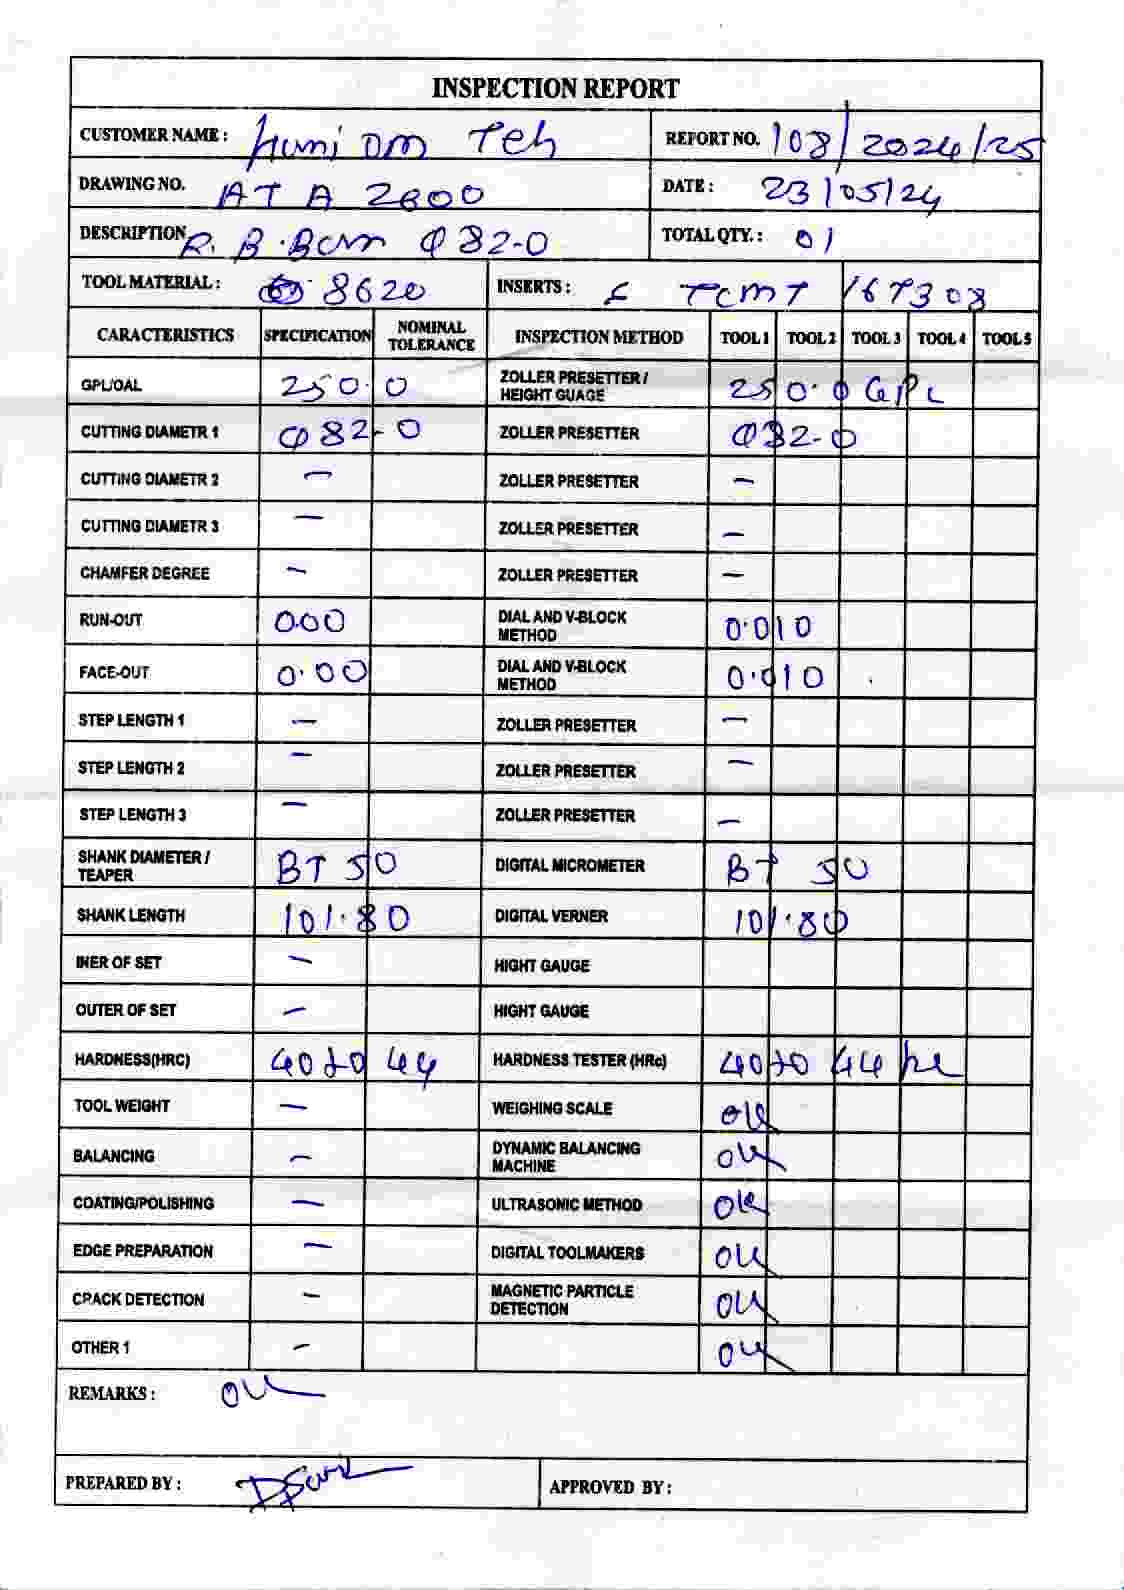 INSPECTION REPORT
CUSTOMER NAME : Om Teh REPORT NO. 108/2024/25
DRAWING NO. ATA 2600 DATE : 23/05/24
DESCRIPTION R. B. Bar φ82-0 TOTAL QTY. : 01
TOOL MATERIAL : 8620 INSERTS : TCMT 16T308
CARACTERISTICS SPECIFICATION NOMINAL TOLERANCE INSPECTION METHOD TOOL 1 TOOL 2 TOOL 3 TOOL 4 TOOL 5
GPL/OAL 250.0 ZOLLER PRESETTER / HEIGHT GUAGE 250.0 GPL
CUTTING DIAMETR 1 φ82-0 ZOLLER PRESETTER φ82-0
CUTTING DIAMETR 2 — ZOLLER PRESETTER —
CUTTING DIAMETR 3 — ZOLLER PRESETTER —
CHAMFER DEGREE — ZOLLER PRESETTER —
RUN-OUT 0.00 DIAL AND V-BLOCK METHOD 0.010
FACE-OUT 0.00 DIAL AND V-BLOCK METHOD 0.010
STEP LENGTH 1 — ZOLLER PRESETTER —
STEP LENGTH 2 — ZOLLER PRESETTER —
STEP LENGTH 3 — ZOLLER PRESETTER —
SHANK DIAMETER / TEAPER BT 50 DIGITAL MICROMETER BT 50
SHANK LENGTH 101.80 DIGITAL VERNER 101.80
INER OF SET — HIGHT GAUGE
OUTER OF SET — HIGHT GAUGE
HARDNESS(HRC) 40 to 44 HARDNESS TESTER (HRc) 40 to 44
TOOL WEIGHT — WEIGHING SCALE OK
BALANCING — DYNAMIC BALANCING MACHINE OK
COATING/POLISHING — ULTRASONIC METHOD OK
EDGE PREPARATION — DIGITAL TOOLMAKERS OK
CRACK DETECTION — MAGNETIC PARTICLE DETECTION OK
OTHER 1 — OK
REMARKS : OK
PREPARED BY : APPROVED BY :